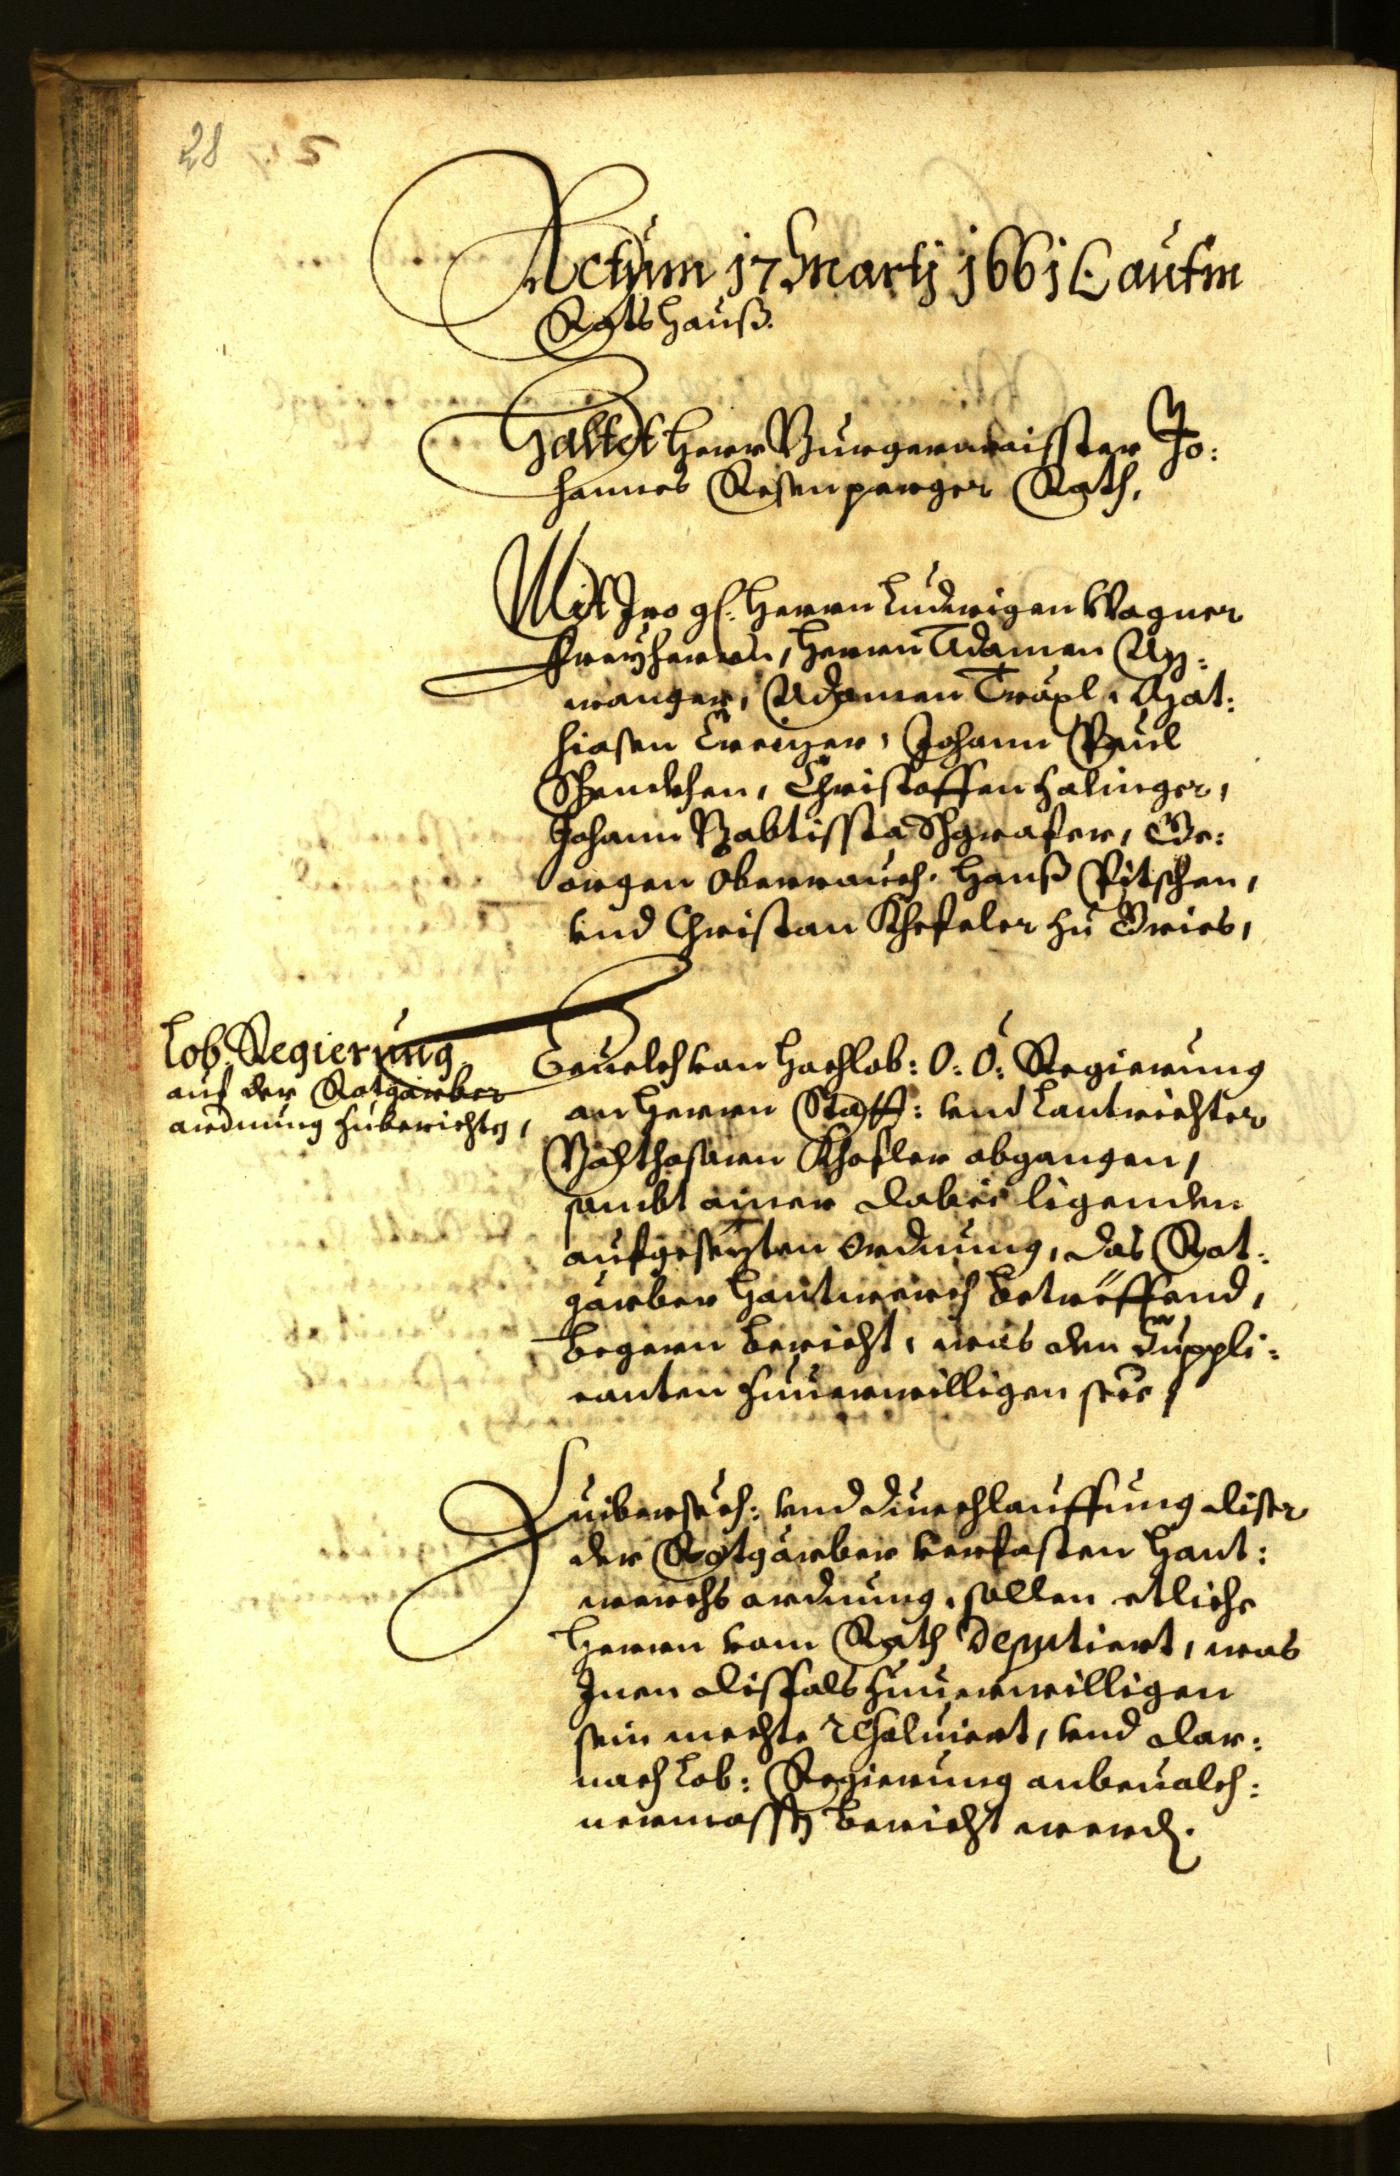 28
5
Actum 17 Martij 1661 Auf'm
Rats Hauß.
Haltet Herr Burgermaisster Jo:
hannes Rosenperger Rath,
Mit Iro gl: Herrn Ludwigen Wagner
Freyherrn, Herrn Adamen
wanger, Adamen Träxl, Mat:
hiasen Creizer, Johann Paul
Schenckhen, Christoffen Halinger,
Johann Babtissta Schgrafer, Ge:
orgen Oberrauch, Hanß Pitschen,
vnd Christan Khofler zu Gries,
Lob. Regierung
auf der Rotgärber
ordnung zuberichtn,
Beuelch von Hochlob: O: Ö: Regierung
an Herrn Statt: vnd Lantrichter
Balthasarn Khofler abgangen,
sambt ainer dabei ligenden
aufgesezten Ordnung, das Rot:
gärber Hantwerch betreffend,
begern bericht, was den Suppli:
canten zuuerwilligen seie,
Zu ibersech: vnd durchlauffung diser
der Rotgärber verfasten Hant:
werchs ordnung, sollen etliche
Herrn vom Rath Deputiert, was
Inen dissfals zuuerwilligen
sein mechte resoluiert, vnd dar:
nach Lob: Regierung anbeuolch:
nermassn bericht werdn.